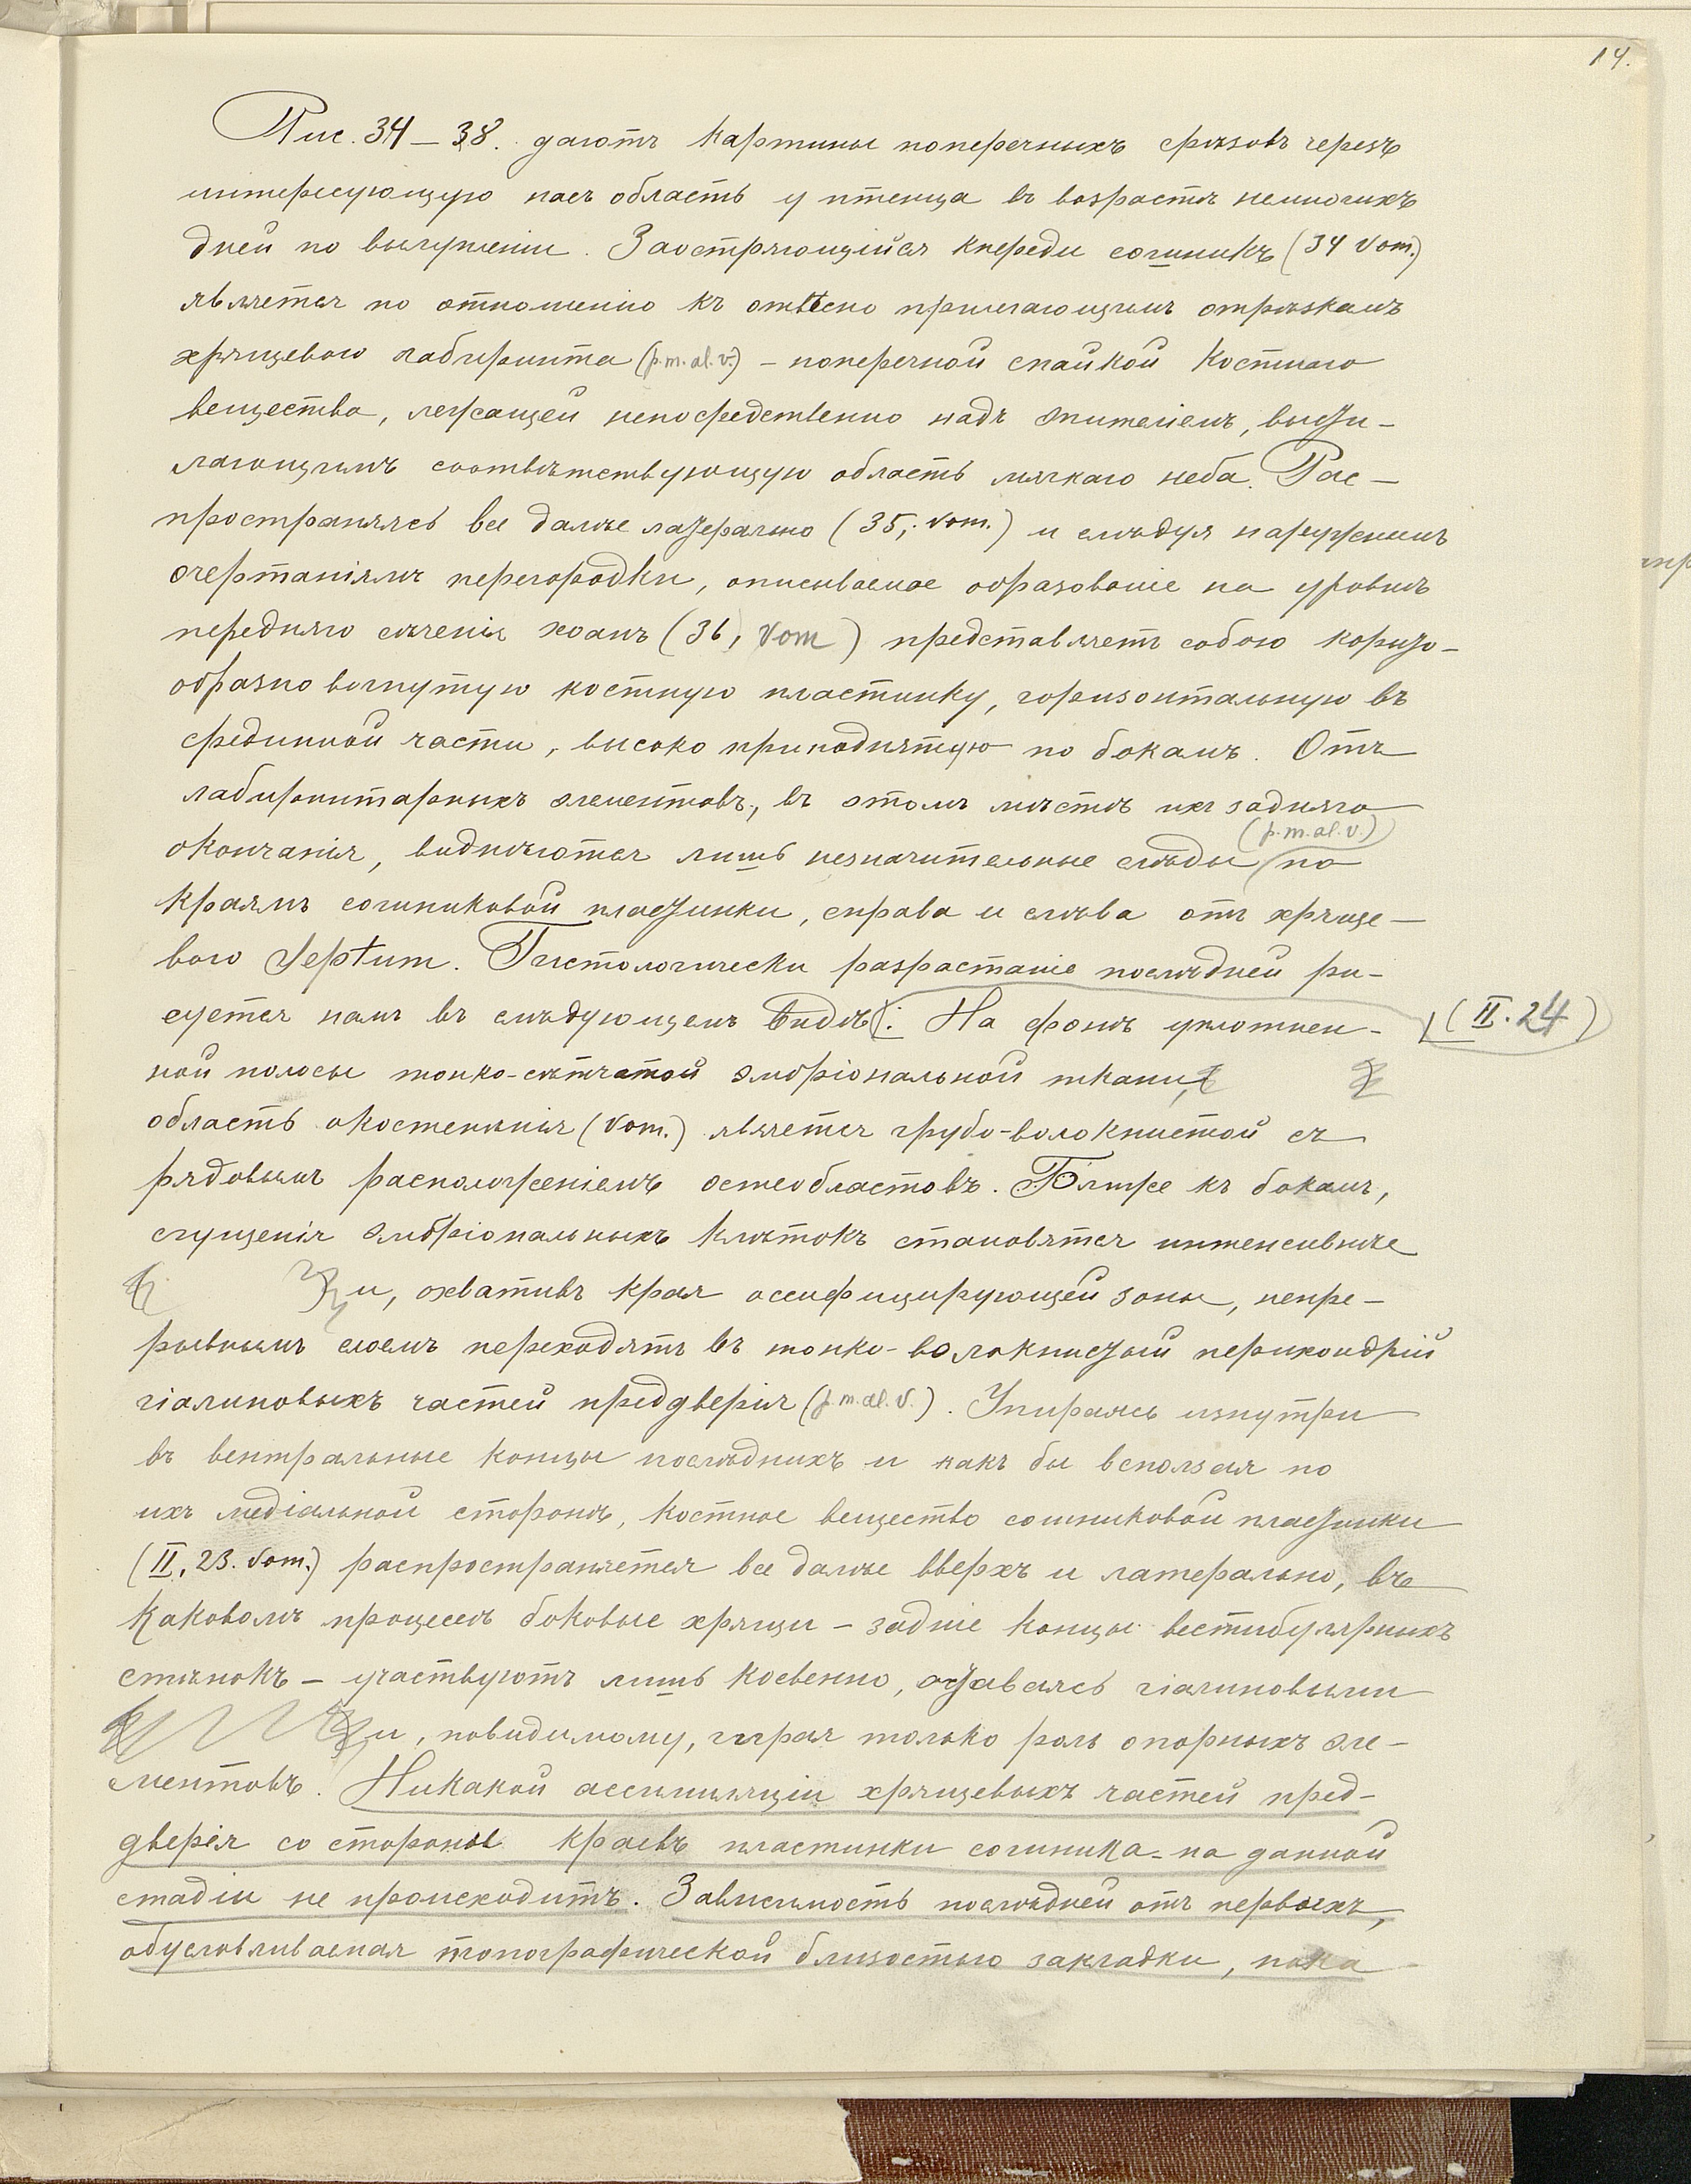 14.
Рис. 34 – 38. даютъ картины поперечныхъ срѣзовъ черезъ
интересующую насъ область у птенца въ возрастѣ немногихъ
дней по вылупленіи. Заостряющійся кпереди сошникъ (34 Vom.)
является по отношенію къ отвѣсно прилегающимъ отрѣзкамъ
хрящевого лабиринта (p.m.al.v.) – поперечной спайкой костнаго
вещества, лежащей непосредственно надъ эпителіемъ, высти-
лающимъ соотвѣтствующую область мягкаго неба. Рас-
пространяясь все далѣе латерально (35, Vom.) и слѣдуя наружнымъ
очертаніямъ перегородки, описываемое образованіе на уровнѣ
передняго сѣченія хоанъ (36, Vom) представляетъ собою корыто-
образно вогнутую костную пластинку, горизонтальную въ
срединной части, высоко приподнятую по бокамъ. Отъ
лабиринтарныхъ элементовъ, въ этомъ мѣстѣ ихъ задняго
(p.m.al.v.)
окончанія, виднѣются лишь незначительные слѣды по
краямъ сошниковой пластинки, справа и слѣва отъ хряще-
вого Septum. Гистологически разрастаніе послѣдней ри-
суется намъ въ слѣдующемъ видѣ: На фонѣ уплотнен-
(II. 24)
ной полосы тонко-сѣтчатой эмбріональной ткани,
область окостенѣнія (Vom.) является грубо-волокнистой съ
рядовымъ расположеніемъ остеобластовъ. Ближе къ бокамъ,
сгущенія эмбріональныхъ клѣтокъ становятся интенсивнѣе
и, охвативъ края оссифицирующей зоны, непре-
рывнымъ слоемъ переходятъ въ тонко-волокнистый перихондрій
гіалиновыхъ частей предверія (p.m.al.v.). Упираясь изнутри
въ вентральные концы послѣднихъ и какъ бы всползая по
ихъ медіальной сторонѣ, костное вещество сошниковой пластинки
(II, 23. Vom.) распространяется все далѣе вверхъ и латерально, въ
каковомъ процессѣ боковые хрящи – задніе концы вестибулярныхъ
стѣнокъ – участвуютъ лишь косвенно, оставаясь гіалиновыми
и, повидимому, играя только роль опорныхъ эле-
ментовъ. Никакой ассимиляціи хрящевыхъ частей пред-
дверія со стороны краевъ пластинки сошника на данной
стадіи не происходитъ. Зависимость послѣдней отъ первыхъ,
обусловливаемая топографической близостью закладки, пока